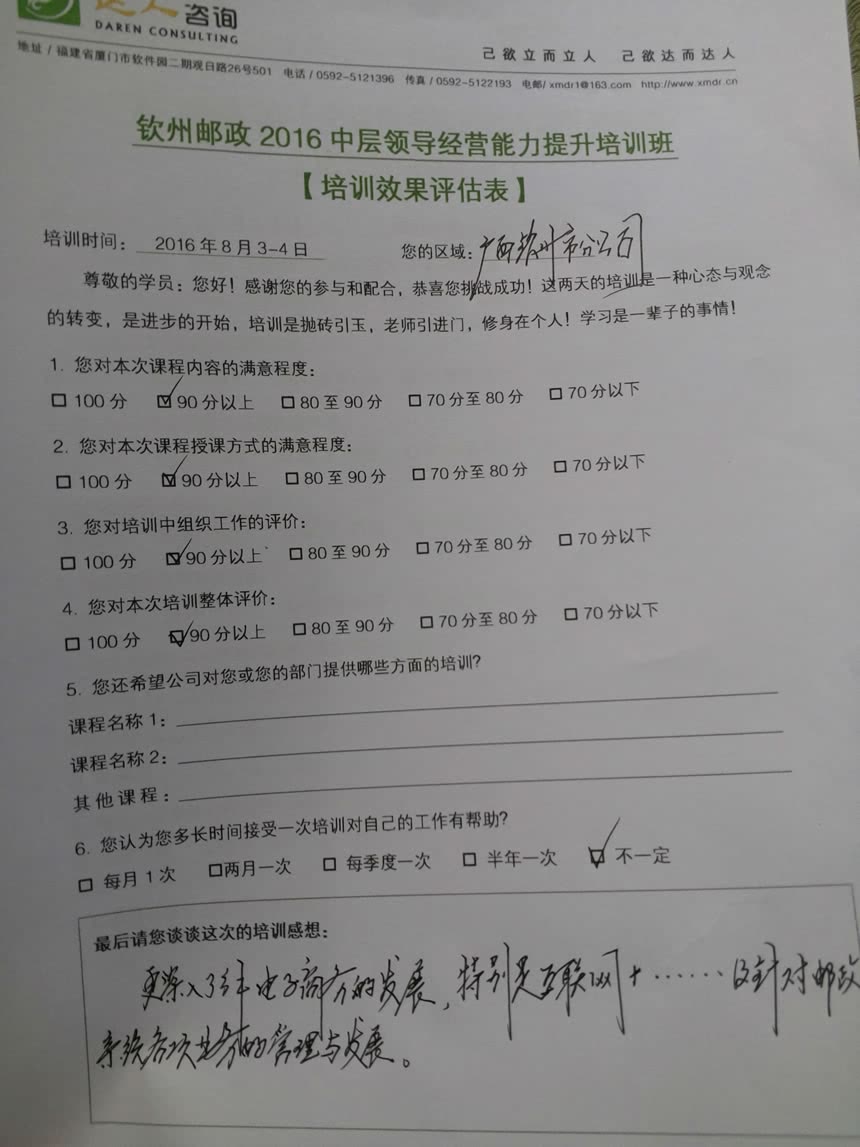 达人咨询
DAREN CONSULTING
己欲立而立人 己欲达而达人
地址/福建省厦门市软件园二期观日路26号501 电话/0592-5121396 传真/0592-5122193 电邮/xmdr1@163.com http://www.xmdr.cn
钦州邮政2016中层领导经营能力提升培训班
【培训效果评估表】
培训时间: 2016年8月3-4日 您的区域:广西钦州市分公司
尊敬的学员:您好!感谢您的参与和配合,恭喜您挑战成功!这两天的培训是一种心态与观念
的转变,是进步的开始,培训是抛砖引玉,老师引进门,修身在个人!学习是一辈子的事情!
1. 您对本次课程内容的满意程度:
□ 100分 ☑ 90分以上 □ 80至90分 □ 70分至80分 □ 70分以下
2. 您对本次课程授课方式的满意程度:
□ 100分 ☑ 90分以上 □ 80至90分 □ 70分至80分 □ 70分以下
3. 您对培训中组织工作的评价:
□ 100分 ☑ 90分以上 □ 80至90分 □ 70分至80分 □ 70分以下
4. 您对本次培训整体评价:
□ 100分 ☑ 90分以上 □ 80至90分 □ 70分至80分 □ 70分以下
5. 您还希望公司对您或您的部门提供哪些方面的培训?
课程名称1:
课程名称2:
其他课程:
6. 您认为您多长时间接受一次培训对自己的工作有帮助?
□ 每月1次 □两月一次 □ 每季度一次 □ 半年一次 ☑ 不一定
最后请您谈谈这次的培训感想:
更深入了解电子商务的发展,特别是互联网+……及针对邮政
系统各项业务的管理与发展。